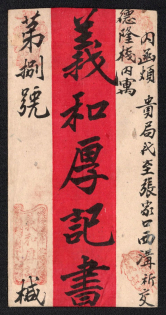 內函煩貴局代至張家口西溝祈交
德隆棧內寓
義和厚記書
第捌號
椷